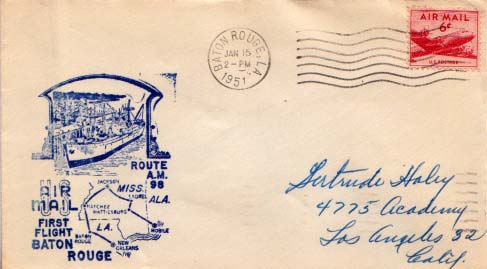 BATON ROUGE, LA
JAN 15
2-PM
1951
AIR MAIL
6¢
U.S. POSTAGE
ROUTE
A.M.
98
JACKSON
MISS.
LAUREL
ALA.
NATCHEZ
HATTIESBURG
LA.
MOBILE
BATON
ROUGE
NEW
ORLEANS
AIR
MAIL
FIRST
FLIGHT
BATON
ROUGE
Gertrude Haley
4775 Academy
Los Angeles 32
Calif.